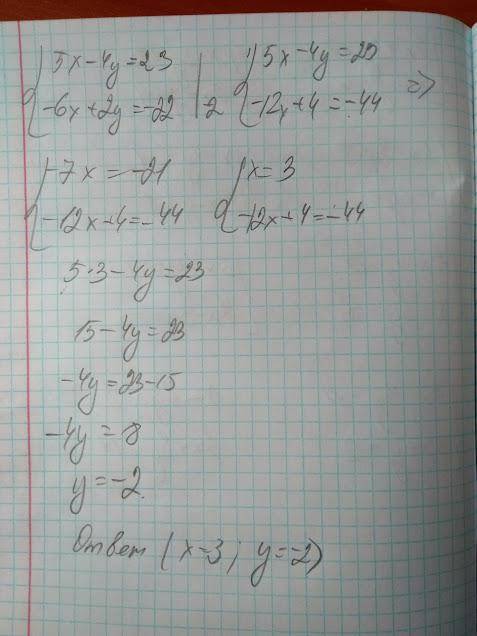 {5x-4y=23 | {5x-4y=23
{-6x+2y=-22 |·2 {-12x+4=-44 =>
{-7x=-21 {x=3
{-12x+4=-44 {-12x+4=-44
5·3-4y=23
15-4y=23
-4y=23-15
-4y=8
y=-2
Ответ (x=3; y=-2)